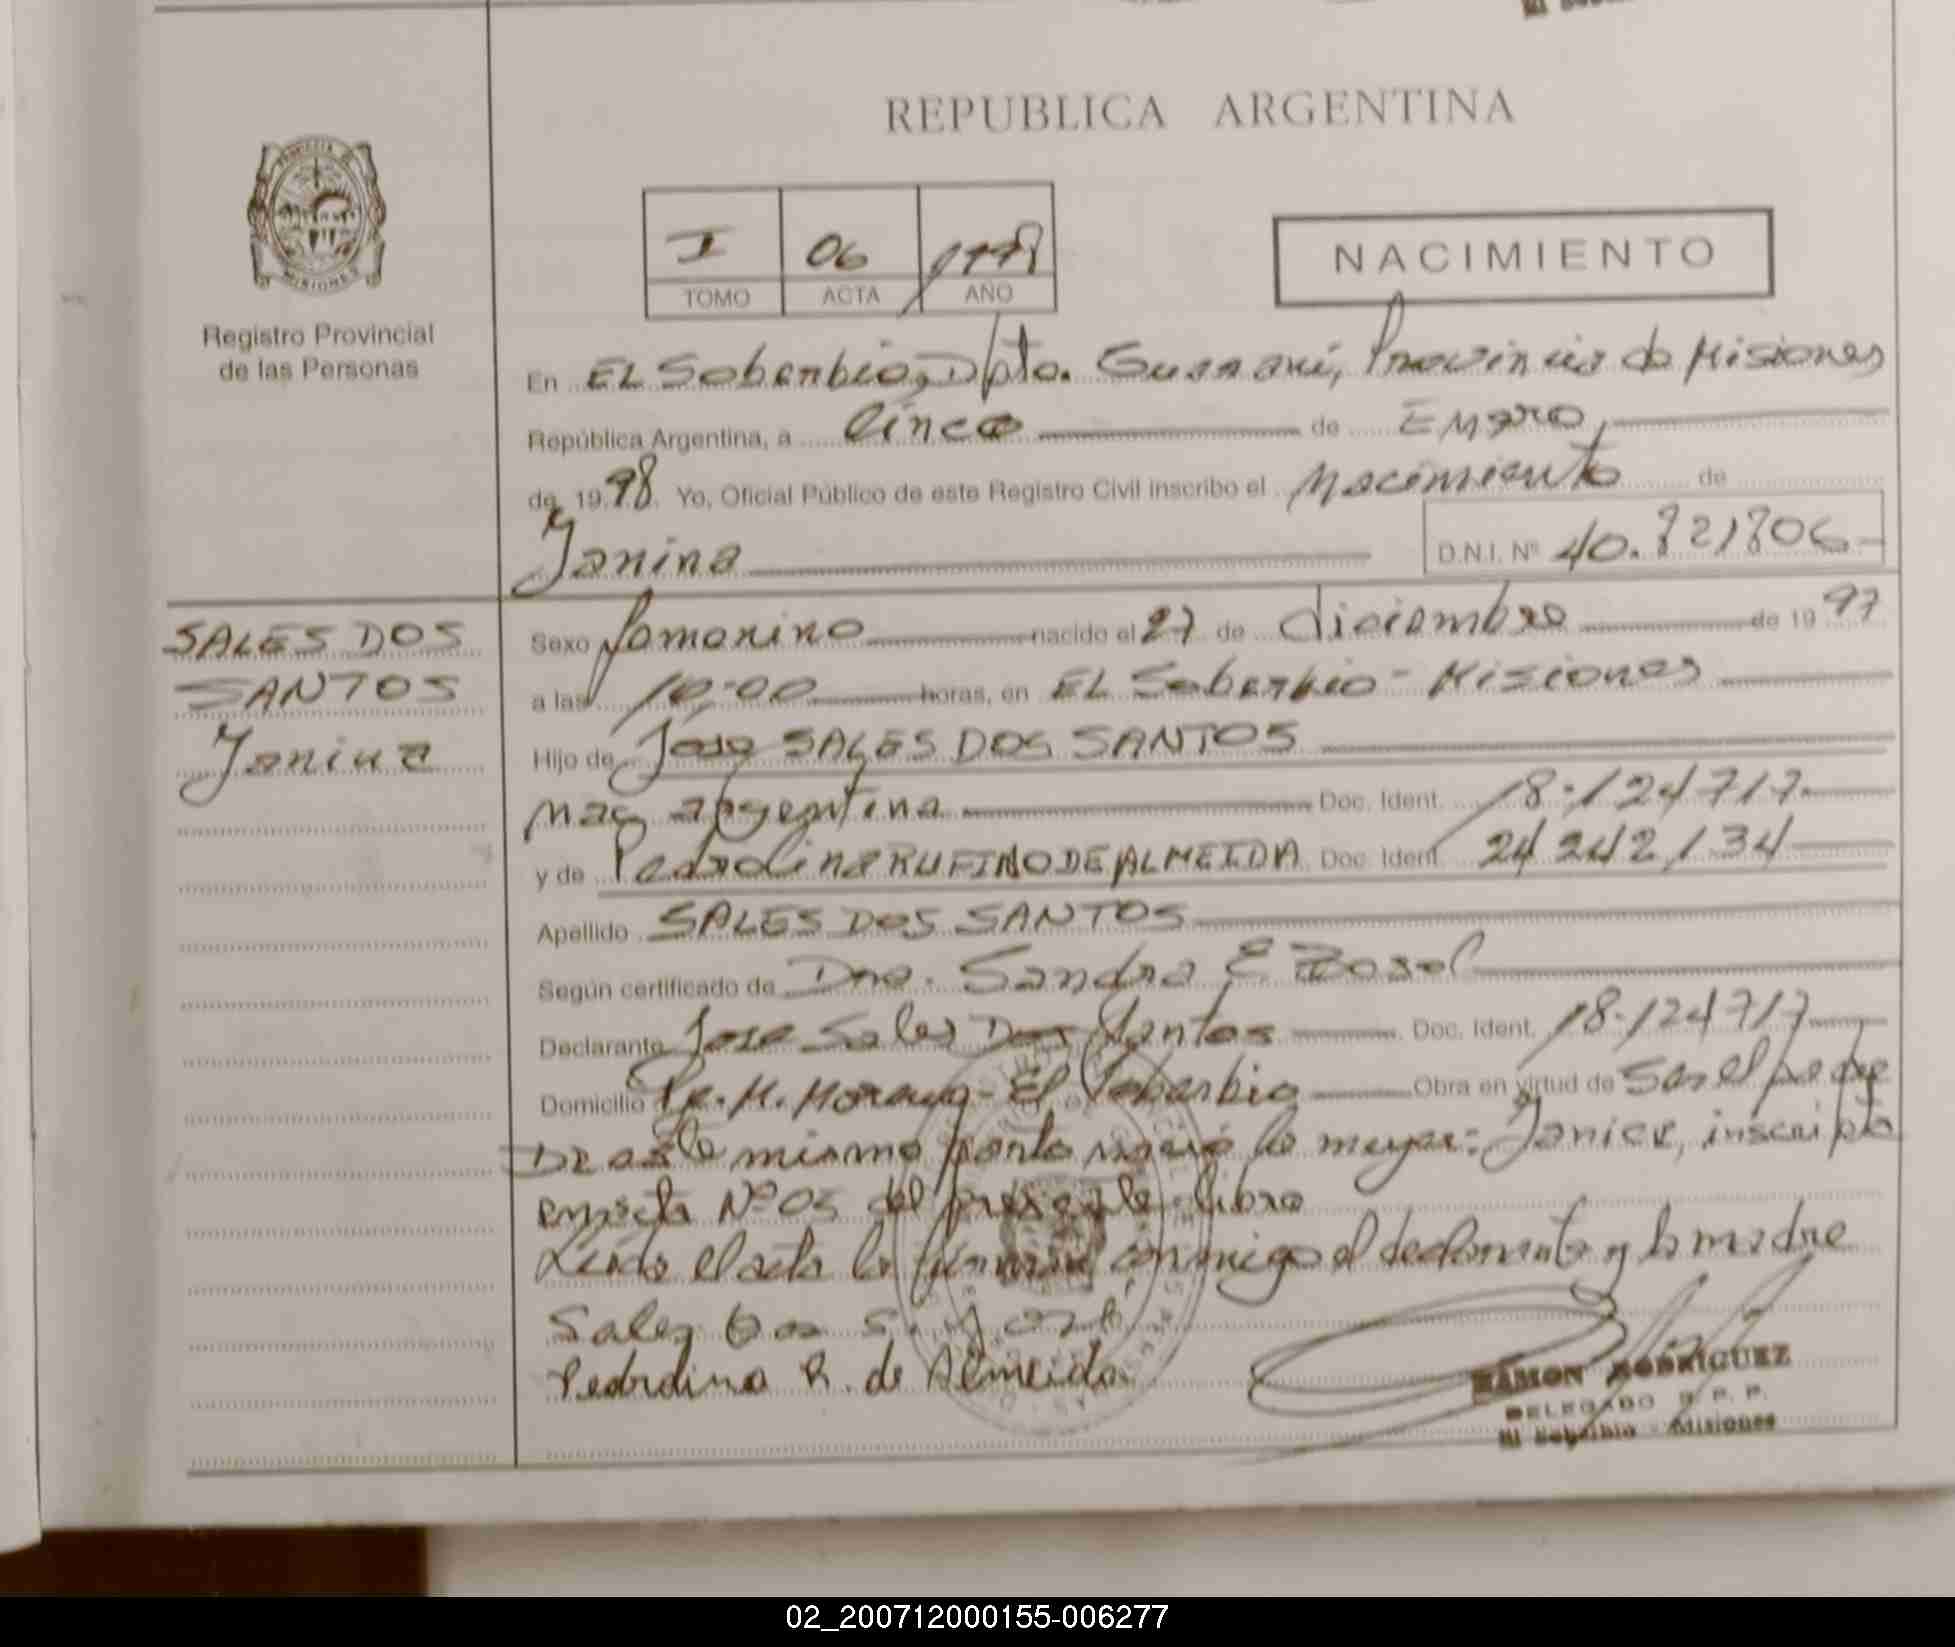 REPUBLICA ARGENTINA
PROVINCIA DE
MISIONES
Registro Provincial
de las Personas
I 06 1998
TOMO ACTA AÑO
NACIMIENTO
En EL Soberbio, Dpto. Guarani, Provincia de Misiones
República Argentina, a Cinco de Enero,
de 1998. Yo, Oficial Público de este Registro Civil inscribo el Nacimiento de
Janina D.N.I. Nº 40.821806
SALES DOS
SANTOS
Janina
Sexo femenino nacido el 27 de diciembre de 1997
a las 10:00 horas, en EL Soberbio - Misiones
Hijo de Jose SALES DOS SANTOS
Nac. argentina Doc. Ident. 18.124717
y de Pedrolina RUFINO DE ALMEIDA Doc. Ident. 24242134
Apellido SALES DOS SANTOS
Según certificado de Dra. Sandra E
Declarante Jose Sales Dos Santos Doc. Ident. 18.124717
Domicilio El Soberbio Obra en virtud de Ser el padre
De este mismo parto nació la mujer: inscripta
en acta Nº 05 del presente libro
Leida el acta la firman conmigo el declarante y la madre
Sales Dos S. José
Pedrolina R. de Almeida
RAMON RODRIGUEZ
DELEGADO R. P. P.
El Soberbio - Misiones
02_200712000155-006277